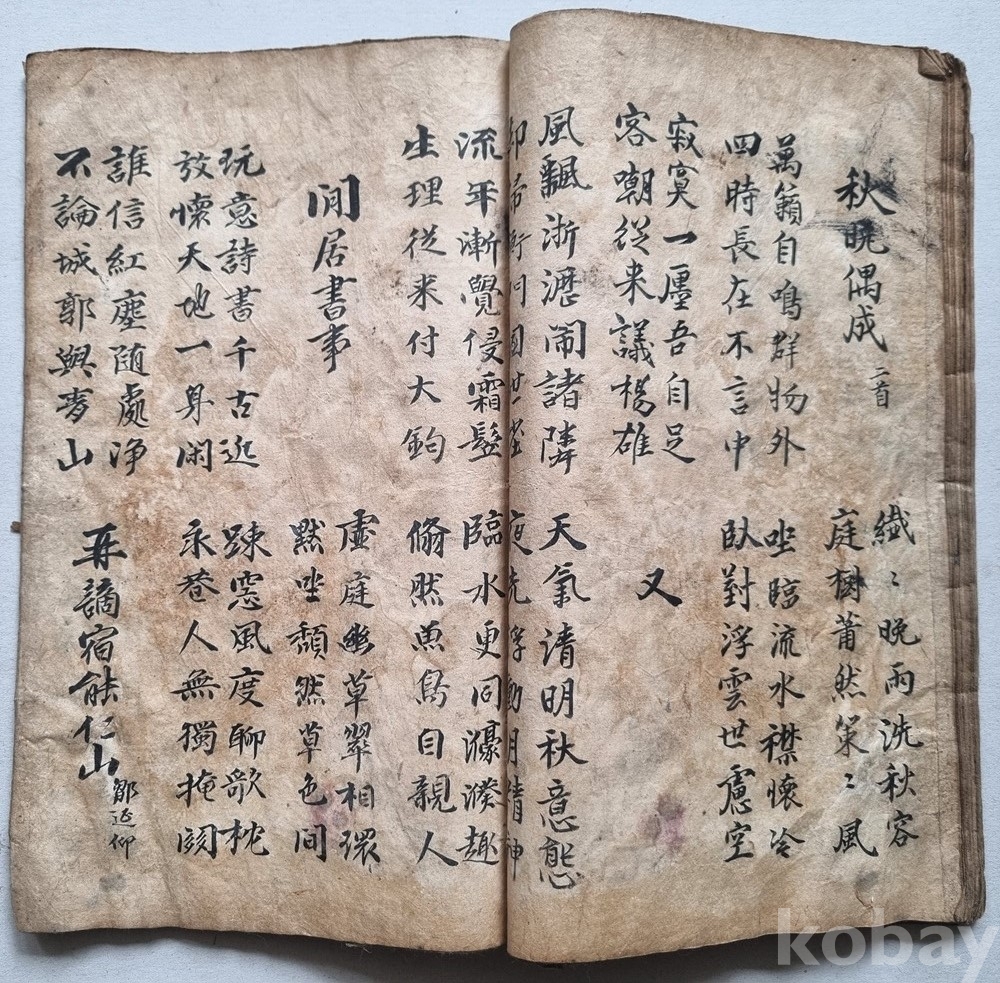 秋晚偶成 二首
纖〻晚雨洗秋容
庭樹蕭然策〻風
萬籟自鳴群物外
四時長在不言中
坐臨流水襟懷冷
臥對浮雲世慮空
寂寞一廛吾自足
客嘲從来議楊雄
又
風飄淅瀝鬧諸隣
門世塵
天氣清明秋意態
夜光浮動月精神
流年漸覺侵霜髮
生理從来付大鈞
臨水更同濠濮趣
翛然魚鳥自親人
閒居書事
虛庭幽草翠相環
默坐頹然草色間
玩意詩書千古近
放懷天地一身闲
踈窓風度聊欹枕
永巷人無獨掩関
誰信紅塵随處净
不論城郭與青山
再謫宿能仁山 鄒延仰
kobay